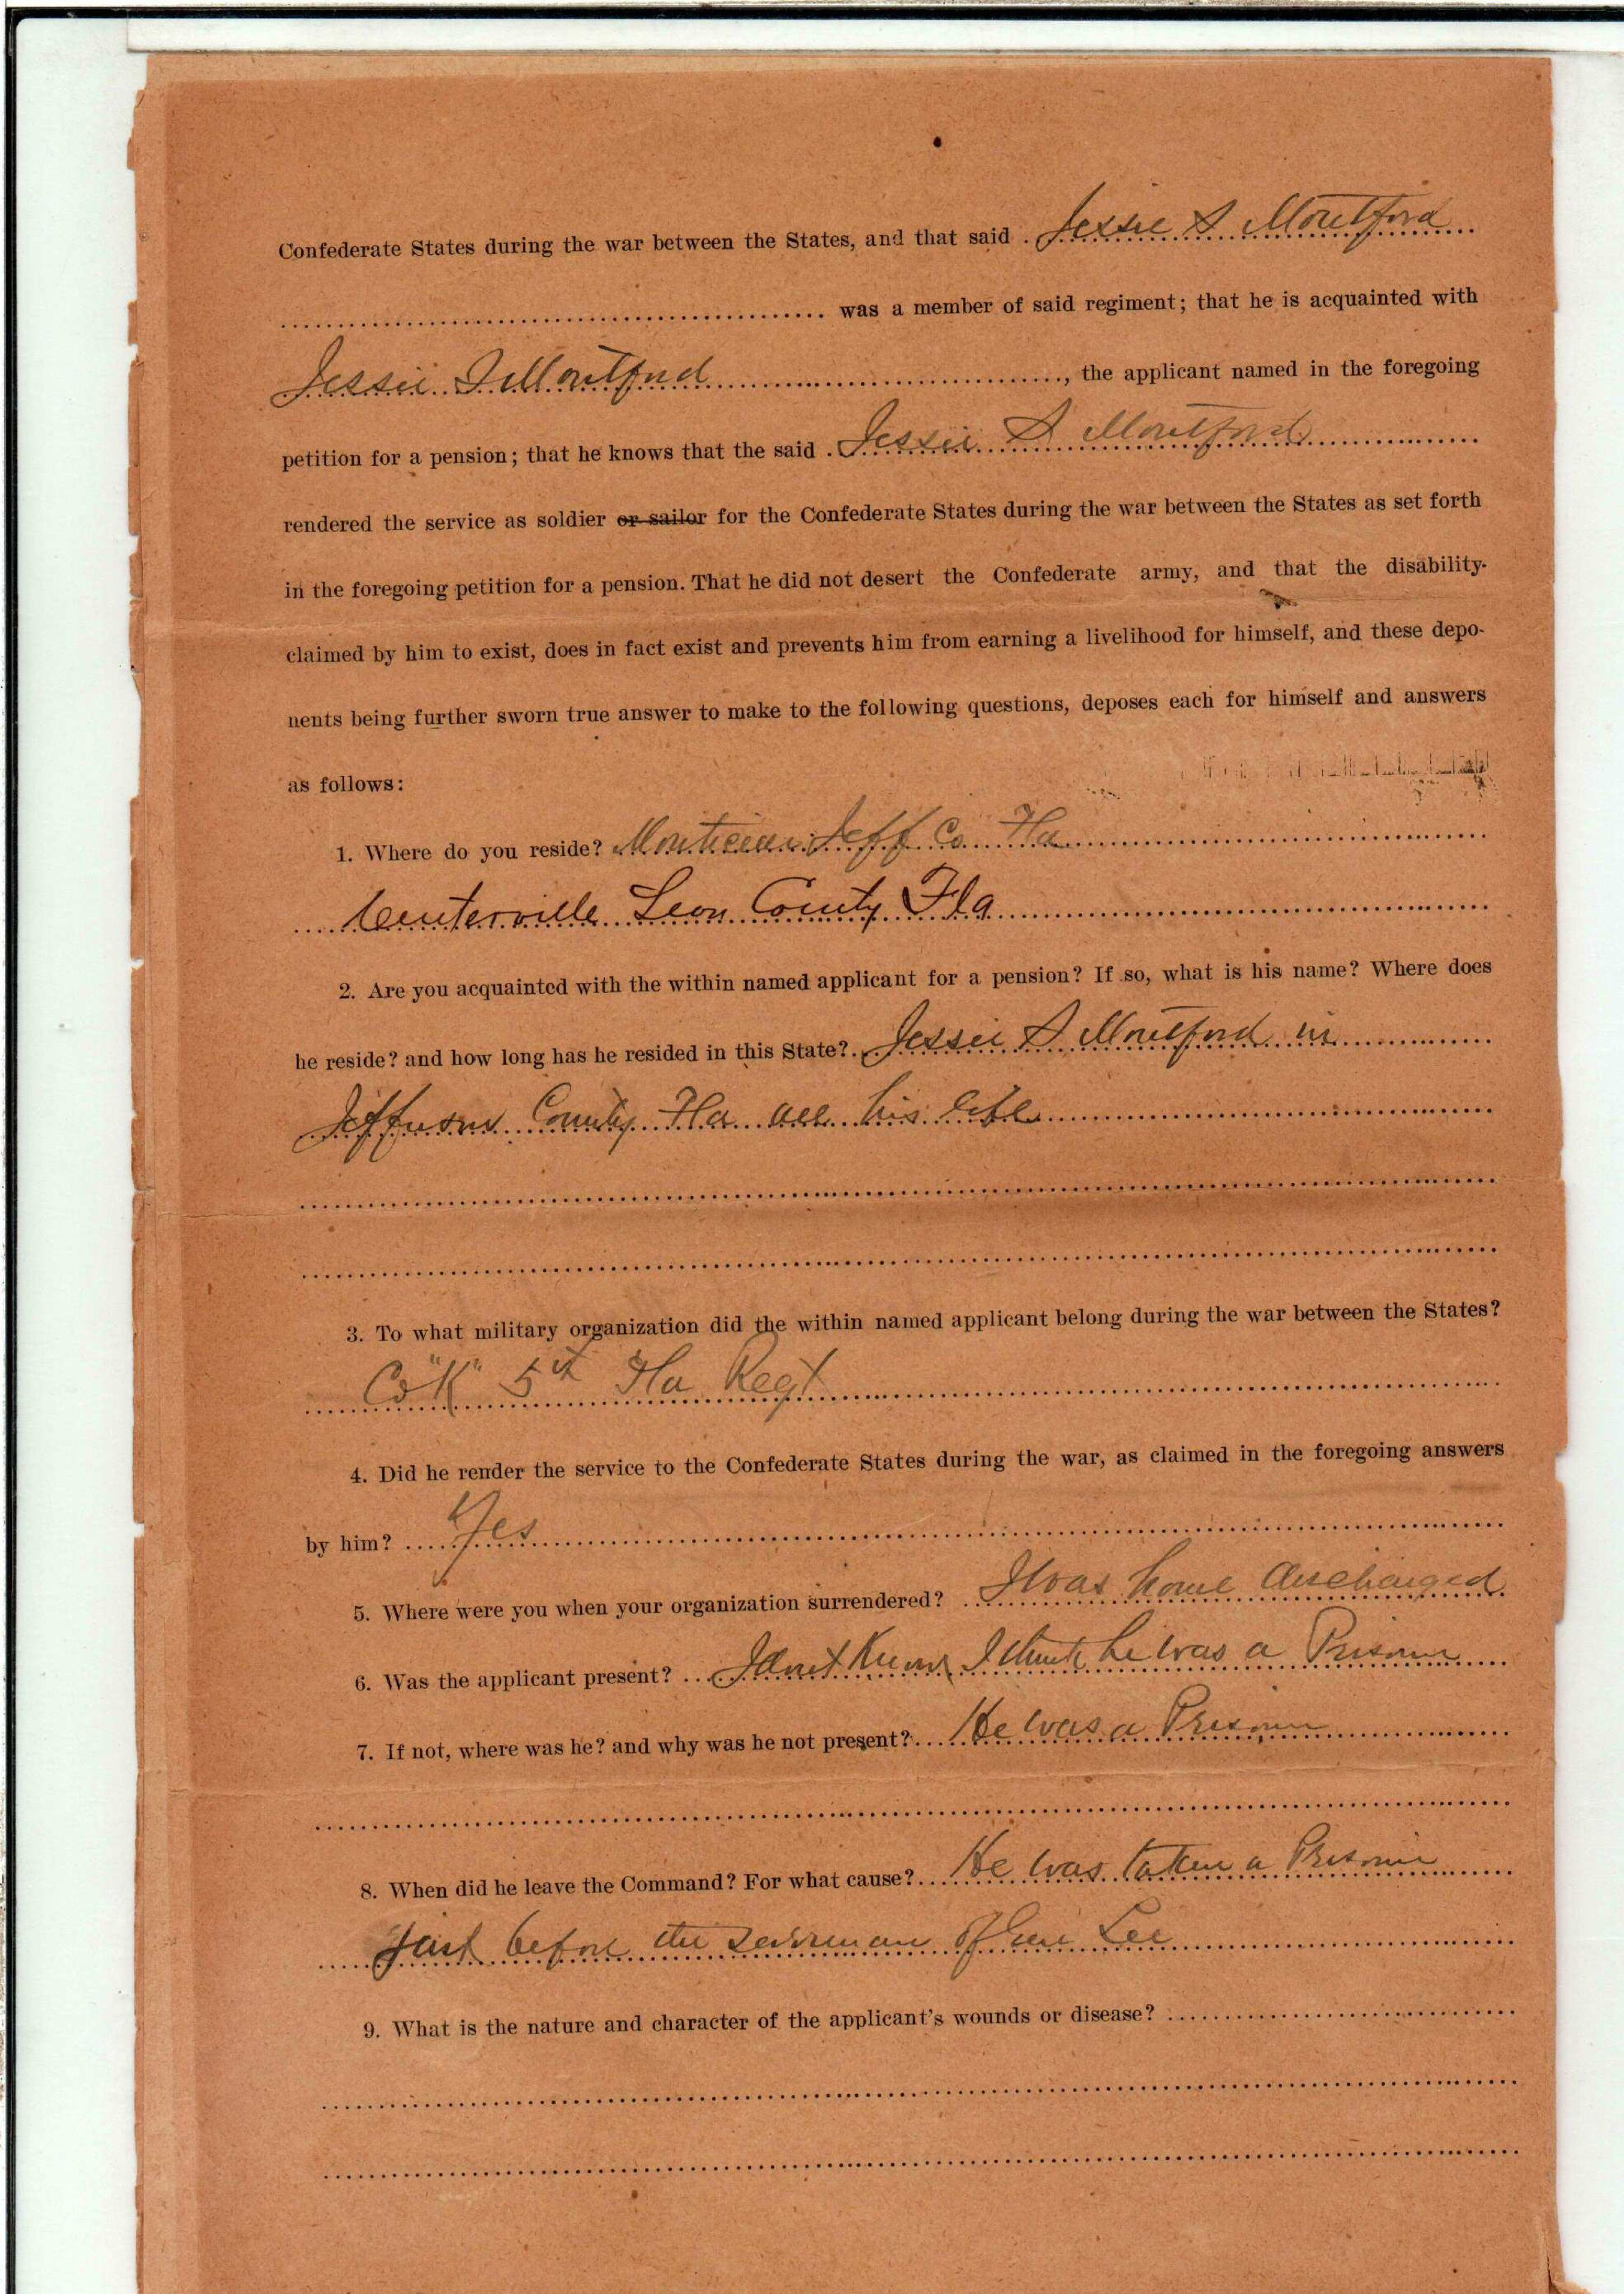 Confederate States during the war between the States, and that said Jessie S Montford
was a member of said regiment; that he is acquainted with
Jessie S Montford, the applicant named in the foregoing
petition for a pension; that he knows that the said Jessie S Montford
rendered the service as soldier or sailor for the Confederate States during the war between the States as set forth
in the foregoing petition for a pension. That he did not desert the Confederate army, and that the disability
claimed by him to exist, does in fact exist and prevents him from earning a livelihood for himself, and these depo-
nents being further sworn true answer to make to the following questions, deposes each for himself and answers
as follows:
1. Where do you reside? Jeff Co Fla
Centerville Leon County Fla
2. Are you acquainted with the within named applicant for a pension? If so, what is his name? Where does
he reside? and how long has he resided in this State? Jessie S Montford in
Jefferson County Fla all his life
3. To what military organization did the within named applicant belong during the war between the States?
Co "K" 5th Fla Regt
4. Did he render the service to the Confederate States during the war, as claimed in the foregoing answers
by him? Yes
5. Where were you when your organization surrendered? I was home discharged
6. Was the applicant present? I dont Know I think he was a Prisoner
7. If not, where was he? and why was he not present? He was a Prisoner
8. When did he leave the Command? For what cause? He was taken a Prisoner
just before the of Gen Lee
9. What is the nature and character of the applicant's wounds or disease?